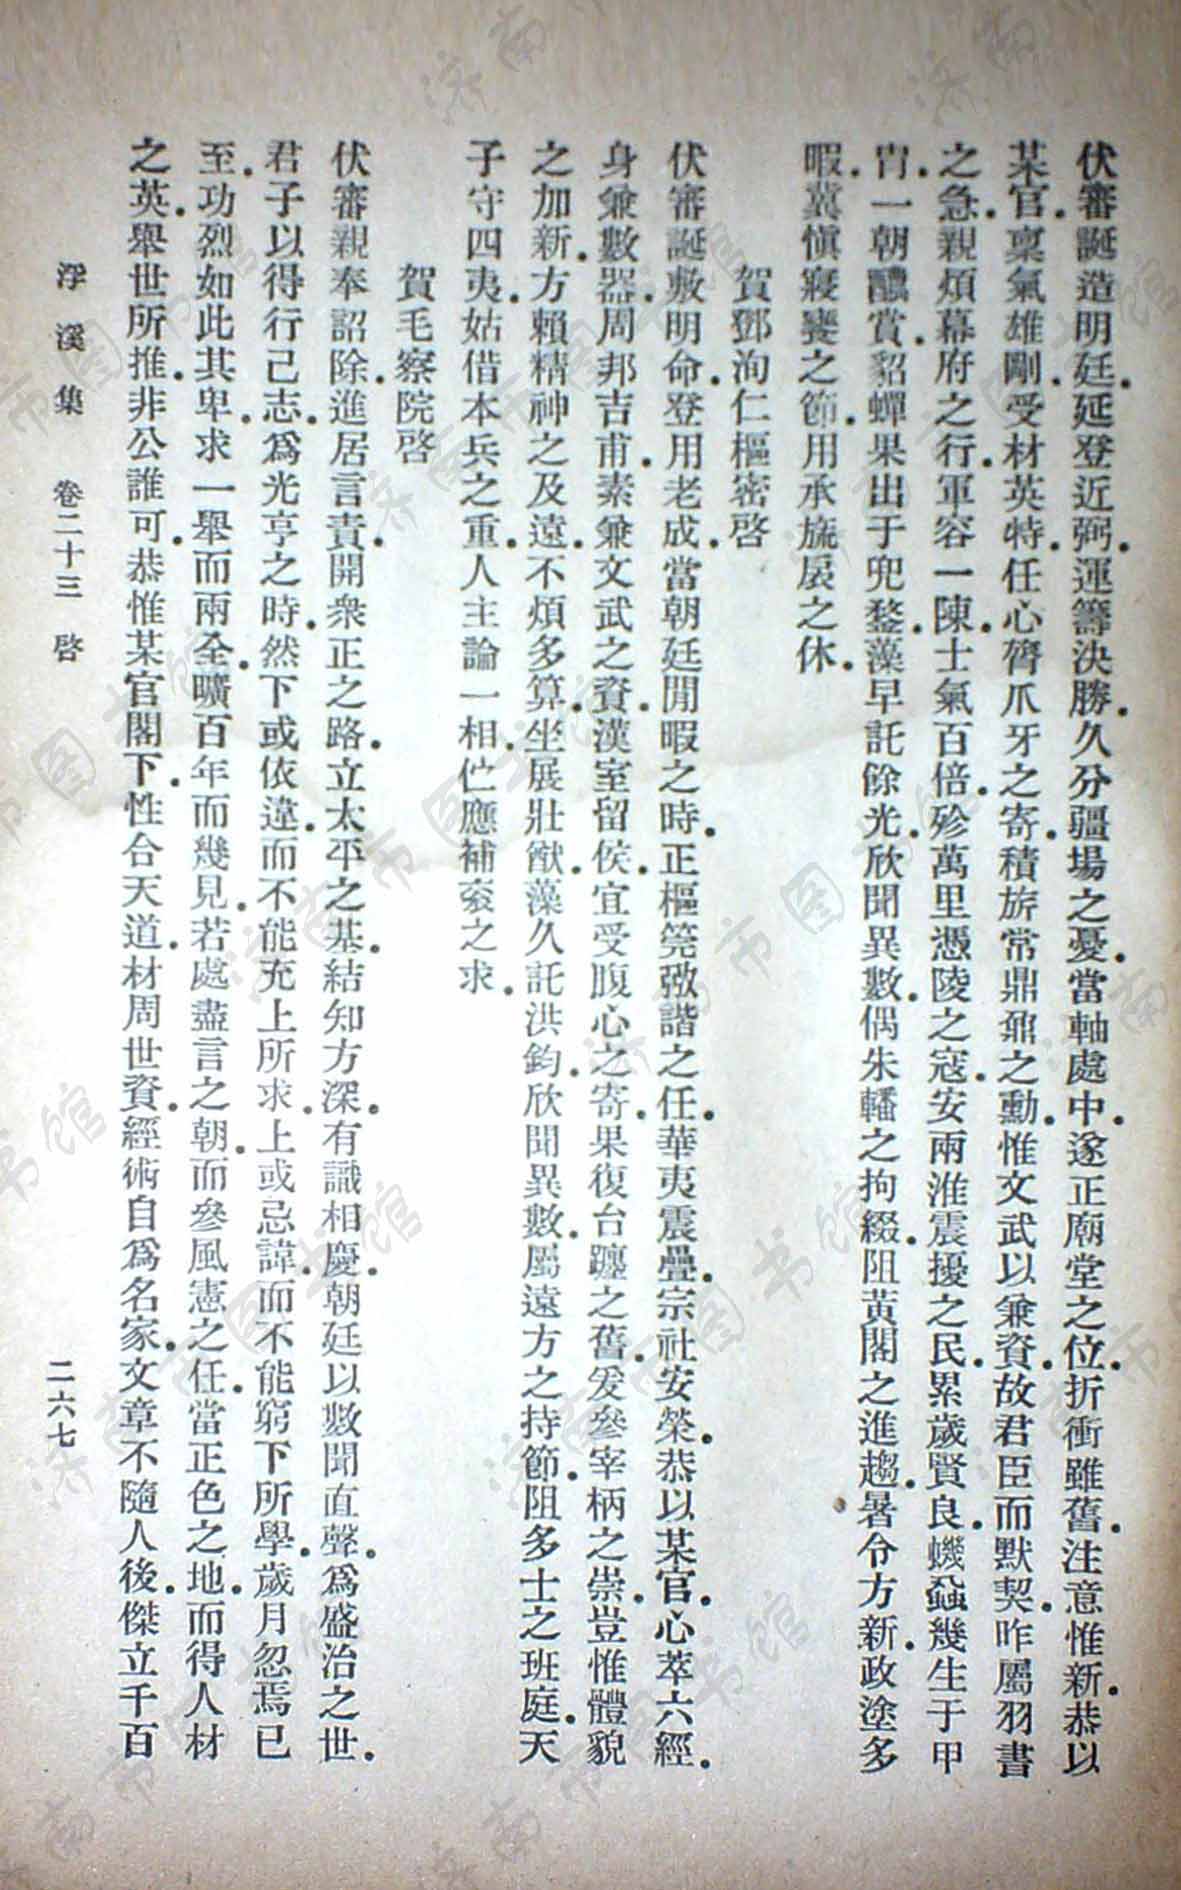 伏審誕造明廷.延登近弼.運籌決勝.久分疆場之憂.當軸處中.遂正廟堂之位.折衝雖舊.注意惟新.恭以
某官.稟氣雄剛.受材英特.任心膂爪牙之寄.積旂常鼎鼐之勳.惟文武以兼資.故君臣而默契.昨屬羽書
之急.親煩幕府之行.軍容一陳.士氣百倍.殄萬里憑陵之寇.安兩淮震擾之民.累歲賢良.蟣蝨幾生于甲
冑.一朝醲賞.貂蟬果出于兜鍪.藻早託餘光.欣聞異數.偶朱轓之拘綴.阻黃閣之進趨.暑令方新.政塗多
暇.冀愼寢褏之節.用承旒扆之休.
賀鄧洵仁樞密啓
伏審誕敷明命.登用老成.當朝廷閒暇之時.正樞筦弼諧之任.華夷震疊.宗社安榮.恭以某官.心萃六經.
身兼數器.周邦吉甫.素兼文武之資.漢室留侯.宜受腹心之寄.果復台躔之舊.爰參宰柄之崇.豈惟體貌
之加新.方賴精神之及遠.不煩多算.坐展壯猷.藻久託洪鈞.欣聞異數.屬遠方之持節.阻多士之班庭.天
子守四夷.姑借本兵之重.人主論一相.伫應補衮之求.
賀毛察院啓
伏審親奉詔除.進居言責.開衆正之路.立太平之基.結知方深.有識相慶.朝廷以數聞直聲.爲盛治之世.
君子以得行己志.爲光亨之時.然下或依違.而不能充上所求.上或忌諱.而不能窮下所學.歲月忽焉已
至.功烈如此其卑.求一舉而兩全.曠百年而幾見.若處盡言之朝.而參風憲之任.當正色之地.而得人材
之英.舉世所推.非公誰可.恭惟某官閣下.性合天道.材周世資.經術自爲名家.文章不隨人後.傑立千百
浮溪集 卷二十三 啓 二六七
济南市图书馆